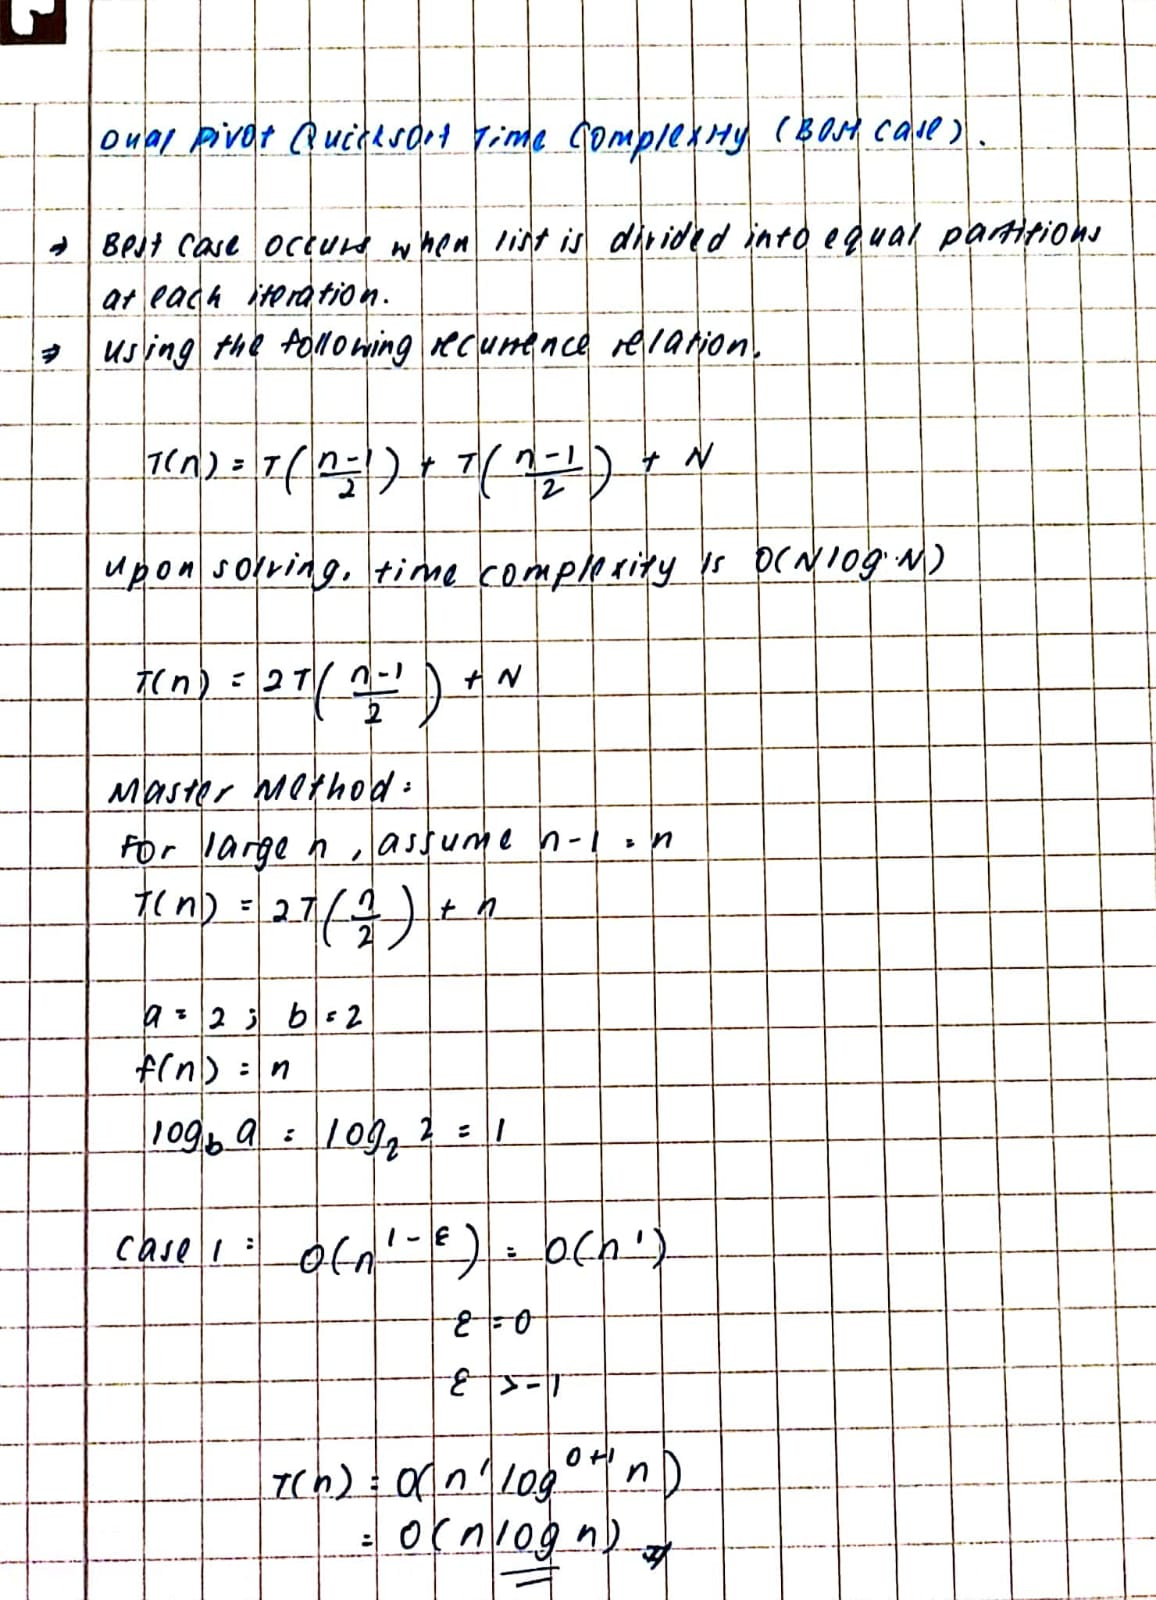 Dual Pivot Quicksort Time Complexity (Best Case).
→ Best Case occurs when list is divided into equal partitions
at each iteration.
→ using the following recurrence relation.
T(n) = T((n-1)/2) + T((n-1)/2) + N
upon solving, time complexity is O(N log N)
T(n) = 2T((n-1)/2) + N
Master Method:
For large n, assume n-1 = n
T(n) = 2T(n/2) + n
a = 2 ; b = 2
f(n) = n
log_b a = log_2 2 = 1
Case 1 : O(n^(1-ε)) = O(n^1)
ε = 0
ε > -1
T(n) = O(n^1 log^(0+1) n)
= O(n log n)